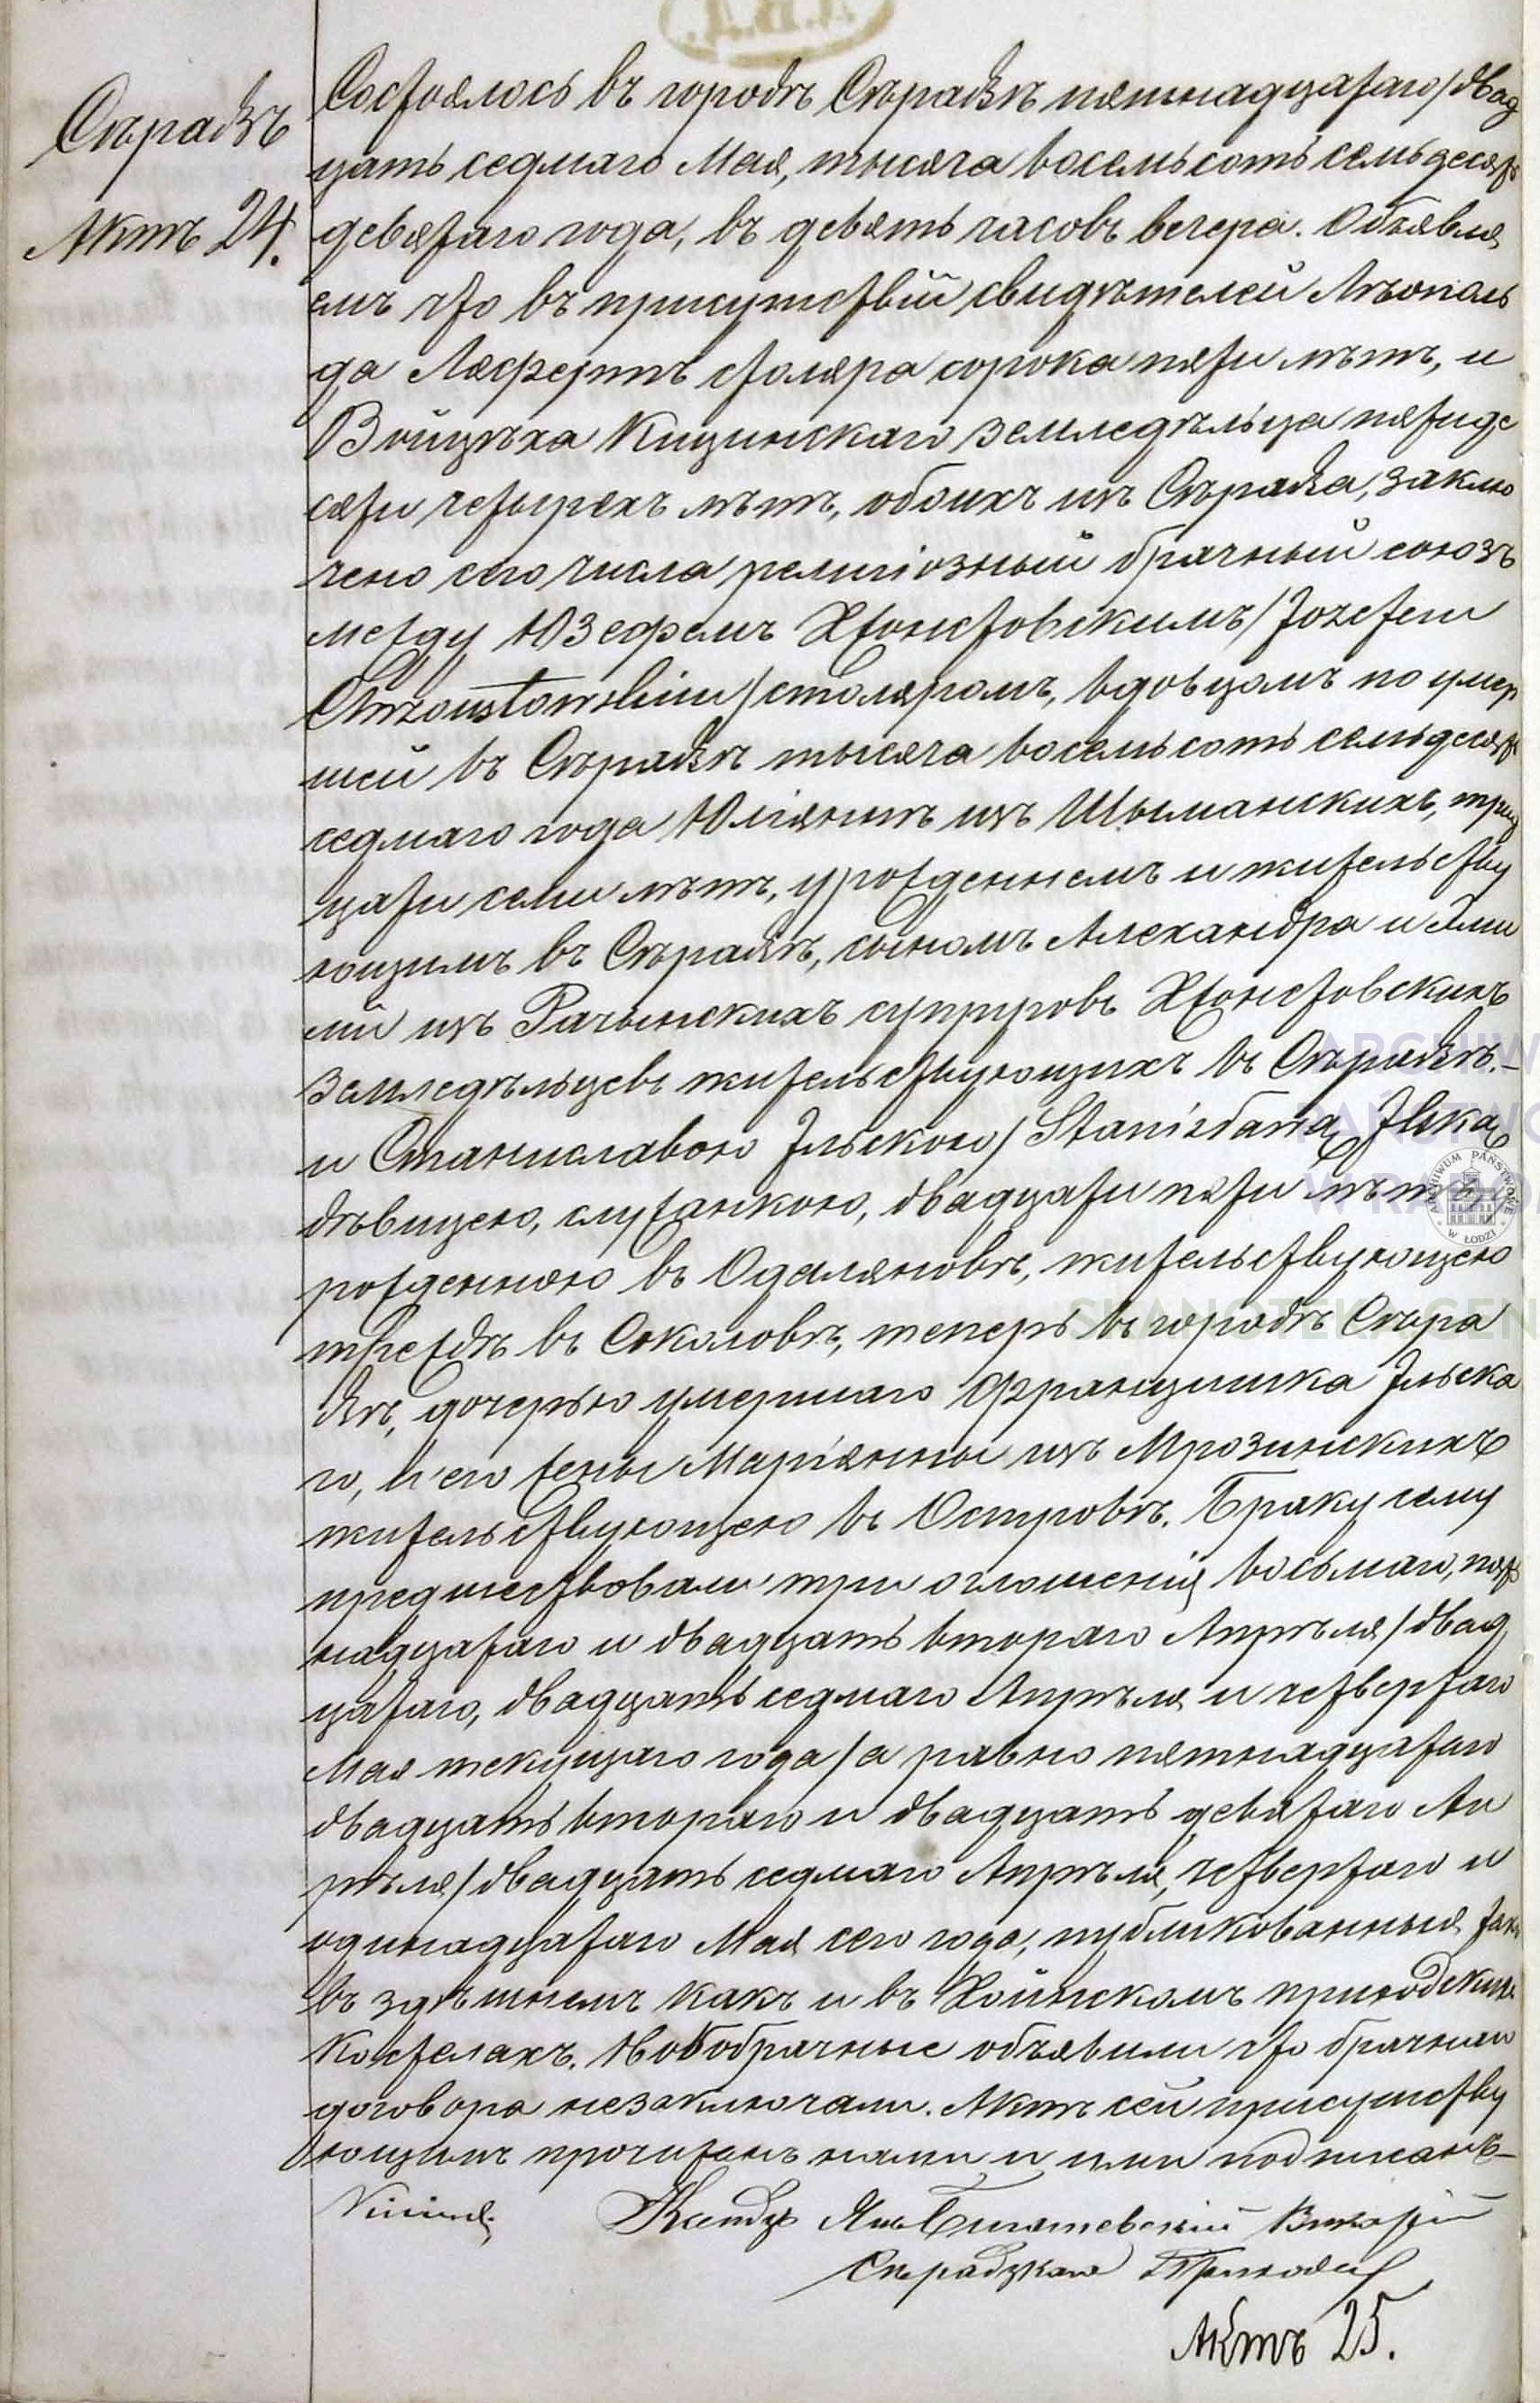 Сѣрадзъ
Актъ 24.
Состоялось въ городѣ Сѣрадзѣ пятнадцатаго/двад
цать седмаго Мая, тысяча восемьсотъ семьдесятъ
девятаго года, въ девять часовъ вечера. Объявля
емъ что въ присутствіи свидѣтелей Лѣополь
да столяра сорока пяти лѣтъ, и
Войцѣха Кицинскаго земледѣльца пятиде
сяти четырехъ лѣтъ, обоихъ изъ Сѣрадза, заклю
чено сего числа религіозный брачный союзъ
между Юзефомъ Хшонстовскимъ/Jozefem
Chrzoustowskim/столяромъ, вдовцомъ по умер
шей въ Сѣрадзѣ тысяча восемьсотъ семьдесятъ
седмаго года Юліяннѣ изъ Шыманскихъ, трид
цати семи лѣтъ, урожденнемъ и жительству
ющимъ въ Сѣрадзѣ, сыномъ Александра и Эми
ліи изъ Рачынскихъ супруговъ Хшонстовскихъ
земледѣльцевъ жительствующихъ въ Сѣрадзѣ.–
и Станиславою Ильскою/Stanisławą Ilską
дѣвицею, служанкою, двадцати пяти лѣтъ
рожденною въ Одаляновѣ, жительствующею
прежде въ Соколовѣ, теперь въ городѣ Сѣра
дзѣ, дочерью умершаго Францишка Ильска
го, и его жены Маріянны изъ Мрозинскихъ
жительствующею въ Островѣ. Браку сему
предшествовали три оглошенія восьмаго, пят
надцатаго и двадцать втораго Апрѣля/двад
цатаго, двадцать седмаго Апрѣля и четвертаго
Мая текущаго года/а равно пятнадцатаго
двадцать втораго и двадцать девятаго Ап
рѣля/двадцать седмаго Апрѣля, четвертаго и
одинадцатаго Мая сего года, публикованныя такъ
въ здѣшнемъ какъ и въ Хойнскомъ приходскихъ
Костелахъ. Новобрачные объявили что брачнаго
договора незаключали. Актъ сей присутству
ющимъ прочитанъ нами и ими подписанъ–
Ксендзъ Викарій
Сѣрадзкаго Прихода
Актъ 25.
ARCHIWUM PAŃSTWOWE
W ŁODZI